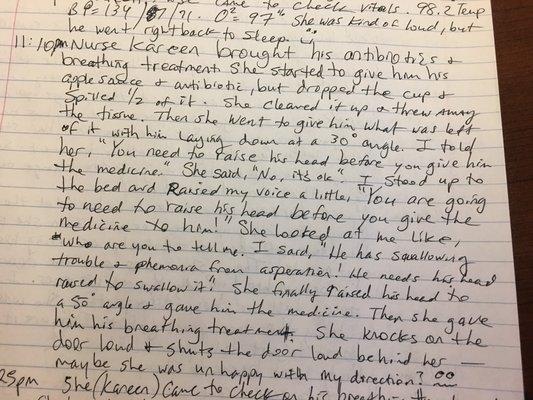 came to check vitals. 98.2 Temp
BP=134/87/71. O²=97" She was kind of loud, but
he went right back to sleep.
11:10pm Nurse Kareen brought his antibiotics &
breathing treatment. She started to give him his
applesauce & antibiotic, but dropped the cup &
spilled 1/2 of it. She cleaned it up & threw away
the tissue. Then she went to give him what was left
of it with him laying down at a 30° angle. I told
her, "You need to raise his head before you give him
the medicine. She said, "No, it's ok". I stood up to
the bed and Raised my voice a little, "You are going
to need to raise his head before you give the
medicine to him!" She looked at me like,
"Who are you to tell me. I said, "He has squallowing
trouble & phemonia from asperation! He needs his head
raised to swallow it". She finally raised his head to
a 50° angle & gave him the medicine. Then she gave
him his breathing treatment. She knocks on the
door loud & shuts the door loud behind her —
maybe she was unhappy with my direction?
25pm She (Kareen) came to check on his breathin